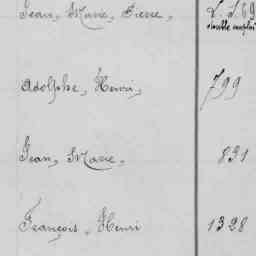 Jean, Marie, Pierre,
double emploi
Adolphe, Henri, 799
Jean, Marie, 831
François, Henri 1328